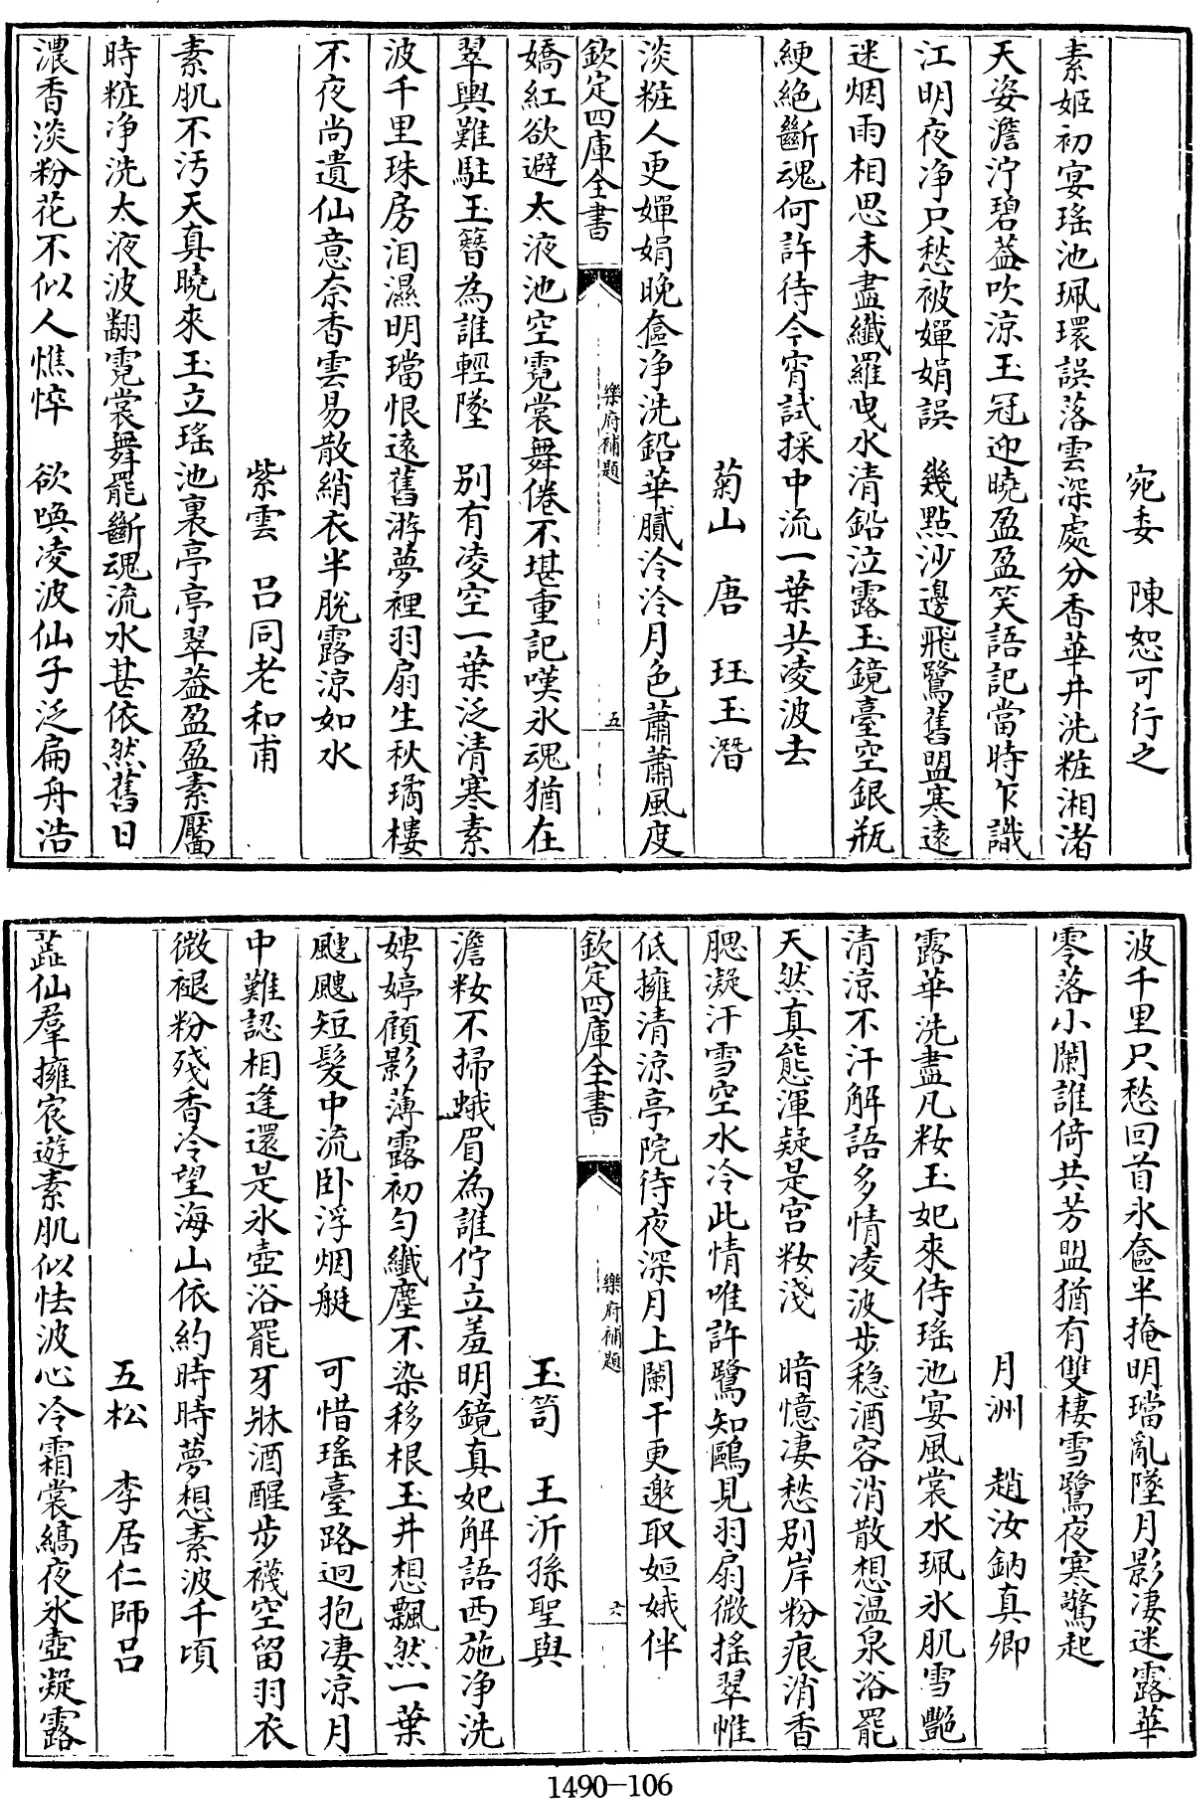 宛委　陳恕可行之
素姬初宴瑤池珮環誤落雲深處分香華井洗粧湘渚
天姿澹泞碧葢吹涼玉冠迎曉盈盈笑語記當時乍識
江明夜净只愁被嬋娟誤　幾點沙邊飛鷺舊盟寒遠
迷烟雨相思未盡纖羅曳水清鉛泣露玉鏡臺空銀瓶
綆絶斷魂何許待今宵試採中流一葉共凌波去
菊山　唐　珏玉潛
淡粧人更嬋娟晚奩净洗鉛華膩泠泠月色蕭蕭風度
欽定四庫全書
樂府補題
五
嬌紅欲避太液池空霓裳舞倦不堪重記嘆氷魂猶在
翠輿難駐玉簪為誰輕墜　別有凌空一葉泛清寒素
波千里珠房泪濕明璫恨遠舊游夢裡羽扇生秋瓊樓
不夜尚遺仙意奈香雲易散綃衣半脱露涼如水
紫雲　呂同老和甫
素肌不汚天真曉來玉立瑤池裏亭亭翠葢盈盈素靨
時粧净洗太液波翻霓裳舞罷斷魂流水甚依然舊日
濃香淡粉花不似人憔悴　欲喚凌波仙子泛扁舟浩
波千里只愁回首氷奩半掩明璫亂墜月影凄迷露華
零落小闌誰倚共芳盟猶有雙棲雪鷺夜寒驚起
月洲　趙汝鈉真卿
露華洗盡凡粧玉妃來侍瑤池宴風裳水珮氷肌雪艷
清涼不汗解語多情凌波步穏酒容消散想温泉浴罷
天然真態渾疑是宫粧淺　暗憶凄愁別岸粉痕消香
腮凝汗雪空水冷此情唯許鷺知鷗見羽扇微搖翠帷
低擁清涼亭院待夜深月上闌干更邀取姮娥伴
欽定四庫全書
樂府補題
六
玉笥　王沂孫聖與
澹粧不掃蛾眉為誰佇立羞明鏡真妃解語西施净洗
娉婷顧影薄露初勻纖塵不染移根玉井想飄然一葉
颼颼短髮中流卧浮烟艇　可惜瑤臺路迥抱凄涼月
中難認相逢還是氷壺浴罷牙牀酒醒步襪空留羽衣
微褪粉殘香冷望海山依約時時夢想素波千頃
五松　李居仁師呂
蕋仙羣擁宸遊素肌似怯波心冷霜裳縞夜氷壺凝露
1490-106